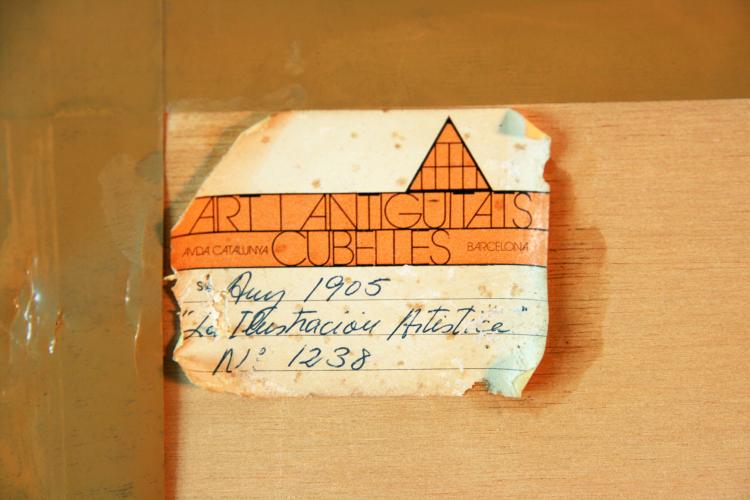 ART I ANTIGÜITATS
AVDA CATALUNYA CUBELLES BARCELONA
Any 1905
"La Ilustracion Artistica"
Nº 1238